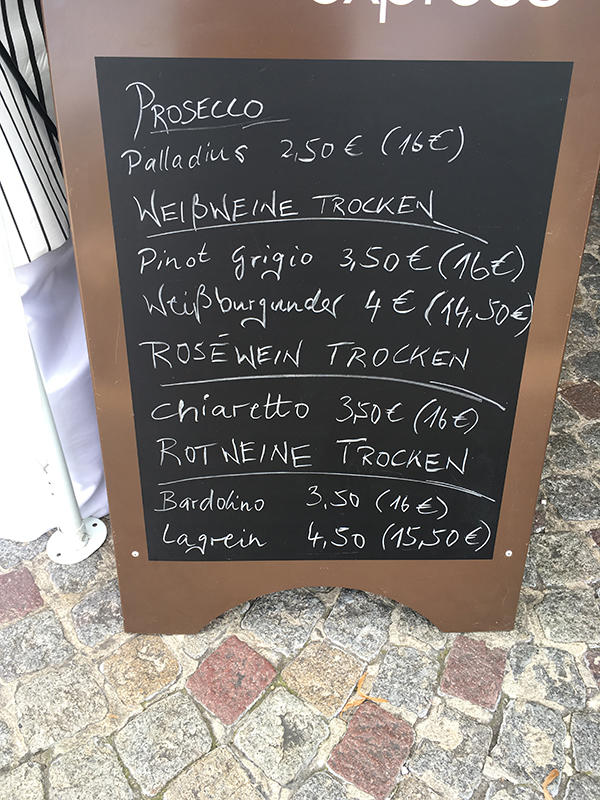 express
PROSECCO
Palladius 2,50 € (16€)
WEIßWEINE TROCKEN
Pinot Grigio 3,50€ (16€)
Weißburgunder 4 € (14,50€)
ROSÉWEIN TROCKEN
Chiaretto 3,50€ (16€)
ROTWEINE TROCKEN
Bardolino 3,50 (16€)
Lagrein 4,50 (15,50€)